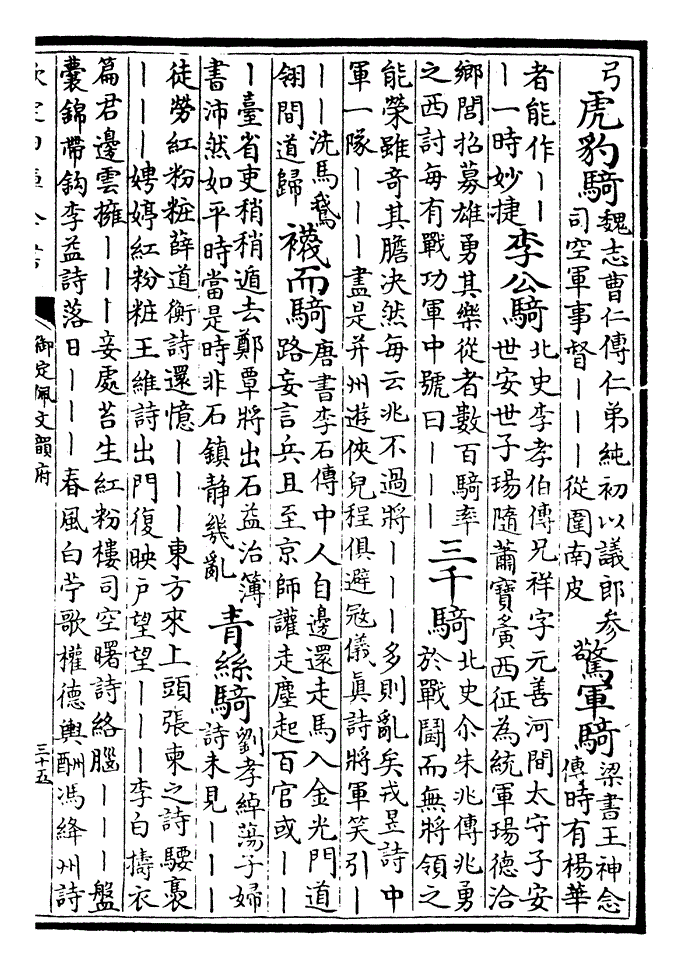 弓虎豹騎魏志曹仁傳仁弟純初以議郎參司空軍事督｜｜｜從圍南皮驚軍騎梁書王神念傳時有楊華
者能作｜｜｜一時妙捷李公騎北史李孝伯傳兄祥字元善河間太守子安世安世子瑒隨蕭寶夤西征為統軍瑒德洽
鄉閭招募雄勇其樂從者數百騎率之西討每有戰功軍中號曰｜｜｜三千騎北史尒朱兆傳兆勇於戰鬪而無將領之
能榮雖竒其膽决然每云兆不過將｜｜｜多則亂矣戎昱詩中軍一隊｜｜｜盡是并州遊俠兒程俱避冦儀真詩將軍笑引｜
｜｜洗馬鵝翎間道歸襪而騎唐書李石傳中人自邊還走馬入金光門道路妄言兵且至京師讙走塵起百官或｜｜
｜臺省吏稍稍遁去鄭覃將出石益治簿書沛然如平時當是時非石鎮静幾亂青絲騎劉孝綽蕩子婦詩未見｜｜｜
徒勞紅粉粧薛道衡詩還憶｜｜｜東方來上頭張柬之詩騕褭｜｜｜娉婷紅粉粧王維詩出門復映戶望望｜｜｜李白擣衣
篇君邊雲擁｜｜｜妾處苔生紅粉樓司空曙詩絡腦｜｜｜盤囊錦帶鈎李益詩落日｜｜｜春風白苧歌權德輿酬馮絳州詩
欽定四庫全書
御定佩文韻府
三十五